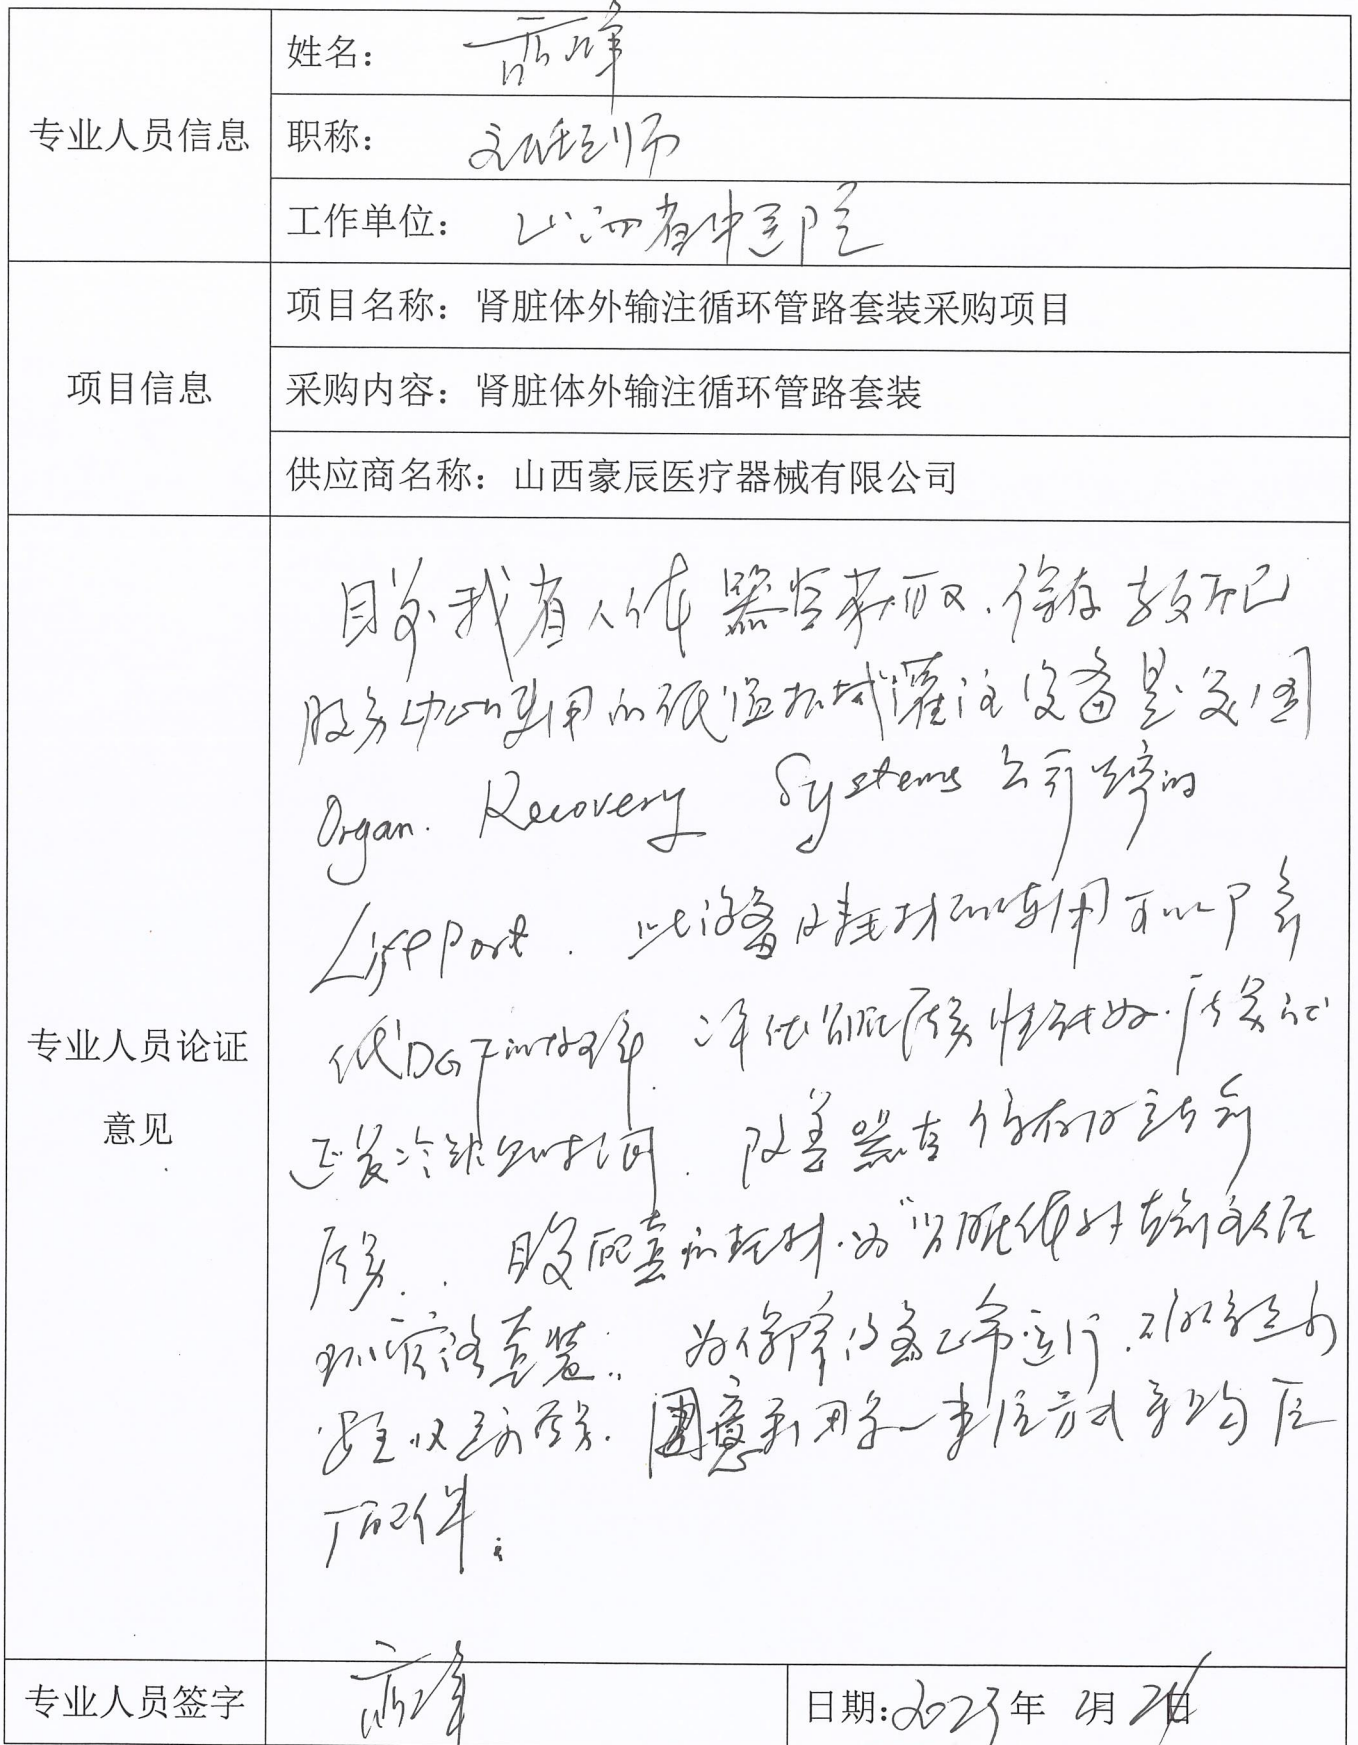 专业人员信息
姓名：
职称： 主任医师
工作单位： 山西省中医院
项目信息
项目名称：肾脏体外输注循环管路套装采购项目
采购内容：肾脏体外输注循环管路套装
供应商名称：山西豪辰医疗器械有限公司
专业人员论证
意见
目前我省人体器官获取、保存
服务中心使用的低温机械灌注设备是美国
Organ Recovery Systems 公司 的
LifePort. 此设备及耗材的使用可以
低DGF的 评估肾脏质量
冷缺血时间. 改善器官保存及
质量. 目前配套的耗材为"肾脏体外输注循
环管路套装. 为保障设备正常运行.
安全 同意采用单一来源方式采购原
厂配件.
专业人员签字
日期:2023年 2月 日